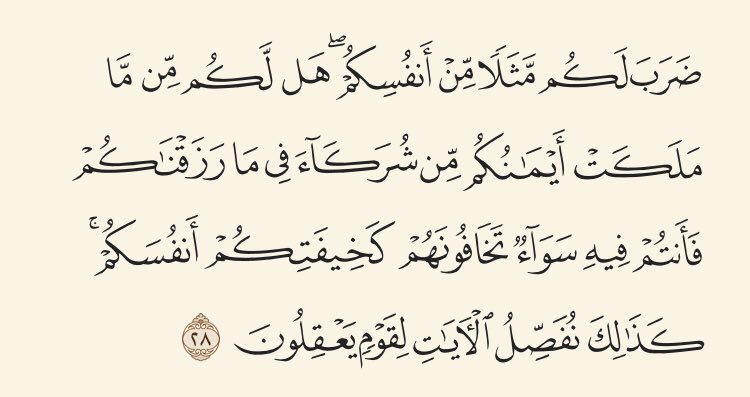 ضَرَبَ لَكُم مَّثَلًا مِّنْ أَنفُسِكُمْ ۖ هَل لَّكُم مِّن مَّا
مَلَكَتْ أَيْمَـٰنُكُم مِّن شُرَكَآءَ فِى مَا رَزَقْنَـٰكُمْ
فَأَنتُمْ فِيهِ سَوَآءٌ تَخَافُونَهُمْ كَخِيفَتِكُمْ أَنفُسَكُمْ ۚ
كَذَٰلِكَ نُفَصِّلُ ٱلْـَٔايَـٰتِ لِقَوْمٍ يَعْقِلُونَ ٢٨